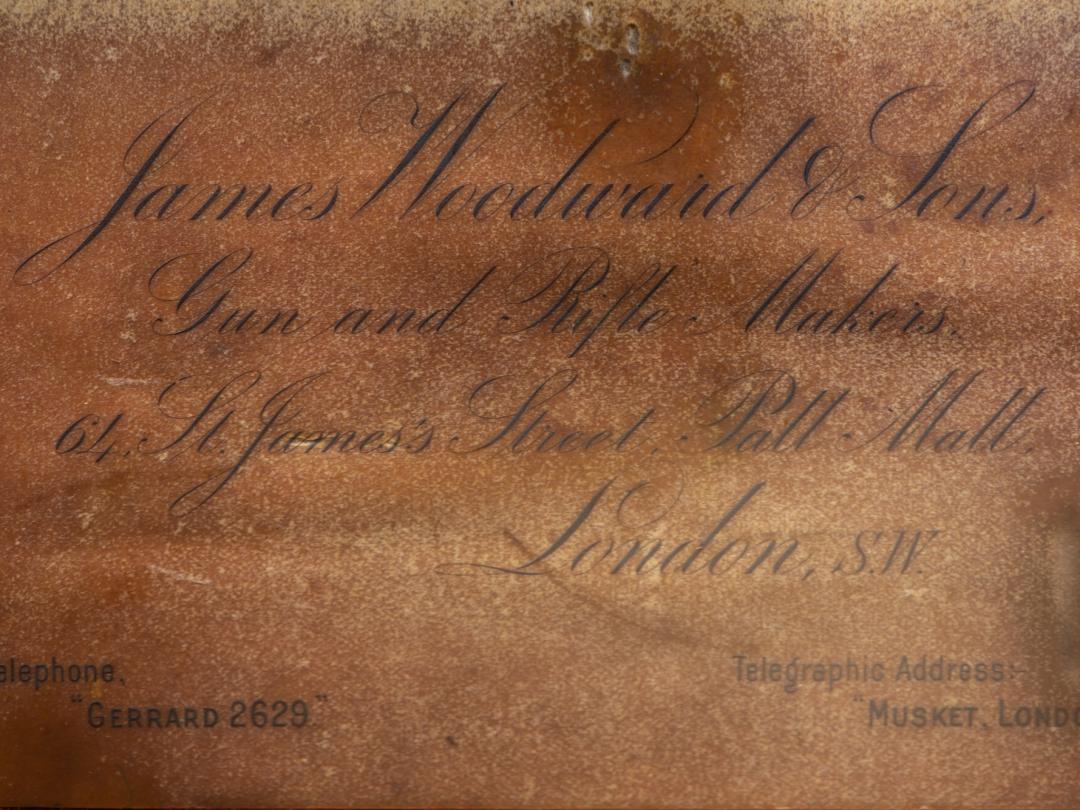 James Woodward & Sons,
Gun and Rifle Makers.
64, St. James's Street, Pall Mall.
London, S.W.
elephone,
"GERRARD 2629"
Telegraphic Address:-
"MUSKET, LONDO